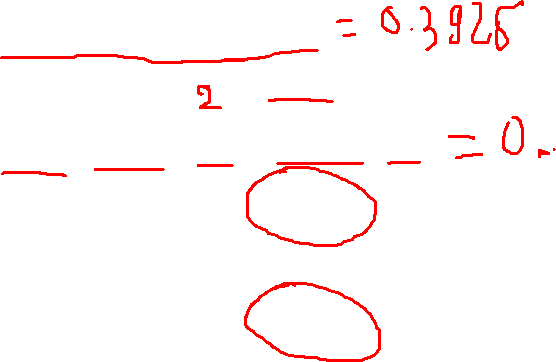 = 0.3925
2 —
= 0.